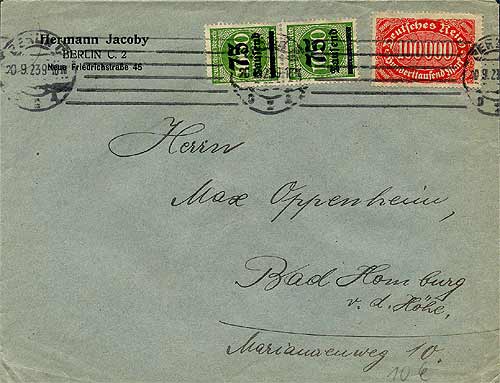 Hermann Jacoby
BERLIN C. 2
Neue Friedrichstraße 45
75
Tausend
75
Tausend
Deutsches Reich
100000
Hunderttausend Mark
Herrn
Max Oppenheim,
Bad Homburg
v. d. Höhe,
Mariannenweg 10.